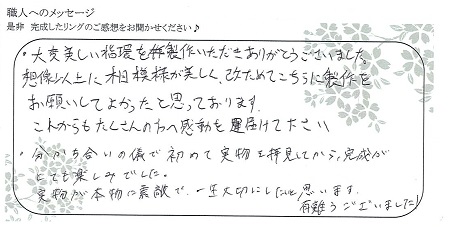 職人へのメッセージ
是非 完成したリングのご感想をお聞かせください♪
・大変美しい指環を製作いただきありがとうございました。
想像以上に木目模様が美しく、改ためてこちらに製作を
お願いしてよかったと思っております。
これからもたくさんの方へ感動を届けて下さい
・分かち合いの儀で初めて実物を拝見してから、完成が
とても楽しみでした。
実物が本物に素敵で、一生大切にしたいと思います。
有難うございました!